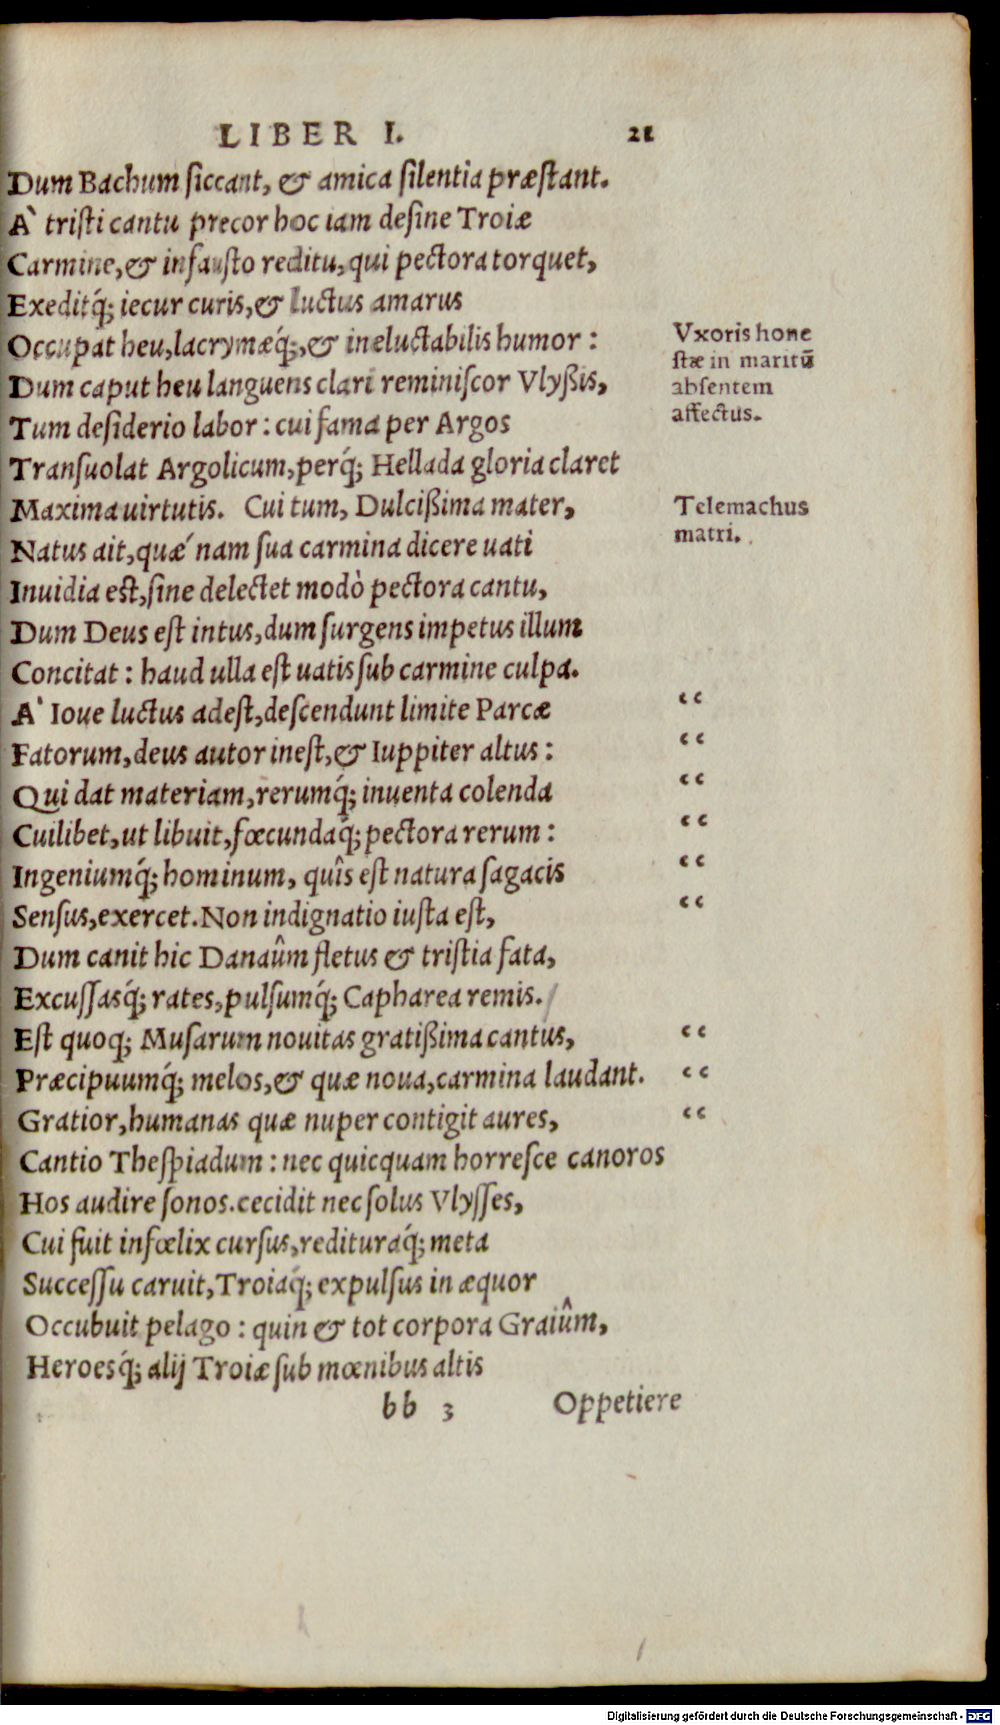 LIBER I. 21
Dum Bachum ſiccant, & amica ſilentia præſtant.
A` triſti cantu precor hoc iam deſine Troiæ
Carmine, & infauſto reditu, qui pectora torquet,
Exeditq́; iecur curis, & luctus amarus
Occupat heu, lacrymæq́;, & ineluctabilis humor :
Dum caput heu languens clari reminiſcor Vlyßis,
Tum deſiderio labor : cui fama per Argos
Tranſuolat Argolicum, perq́; Hellada gloria claret
Maxima uirtutis. Cui tum, Dulcißima mater,
Natus ait, quæ´ nam ſua carmina dicere uati
Inuidia eſt, ſine delectet modò pectora cantu,
Dum Deus eſt intus, dum ſurgens impetus illum
Concitat : haud ulla eſt uatis ſub carmine culpa.
A` Ioue luctus adeſt, deſcendunt limite Parcæ “
Fatorum, deus autor ineſt, & Iuppiter altus : “
Qui dat materiam, rerumq́; inuenta colenda “
Cuilibet, ut libuit, fœcundaq́; pectora rerum : “
Ingeniumq́; hominum, quîs eſt natura ſagacis “
Senſus, exercet. Non indignatio iuſta eſt, “
Dum canit hic Danaûm fletus & triſtia fata,
Excuſſasq́; rates, pulſumq́; Capharea remis.
Eſt quoq; Muſarum nouitas gratißima cantus, “
Præcipuumq́; melos, & quæ noua, carmina laudant. “
Gratior, humanas quæ nuper contigit aures, “
Cantio Theſpiadum : nec quicquam horreſce canoros
Hos audire ſonos. cecidit nec ſolus Vlyſſes,
Cui fuit infœlix curſus, redituraq́; meta
Succeſſu caruit, Troiaq́; expulſus in æquor
Occubuit pelago : quin & tot corpora Graiûm,
Heroesq́; alij Troiæ ſub mœnibus altis
bb 3 Oppetiere
Vxoris hone
ſtæ in maritũ
abſentem
affectus.
Telemachus
matri.
Digitalisierung gefördert durch die Deutsche Forschungsgemeinschaft - DFG